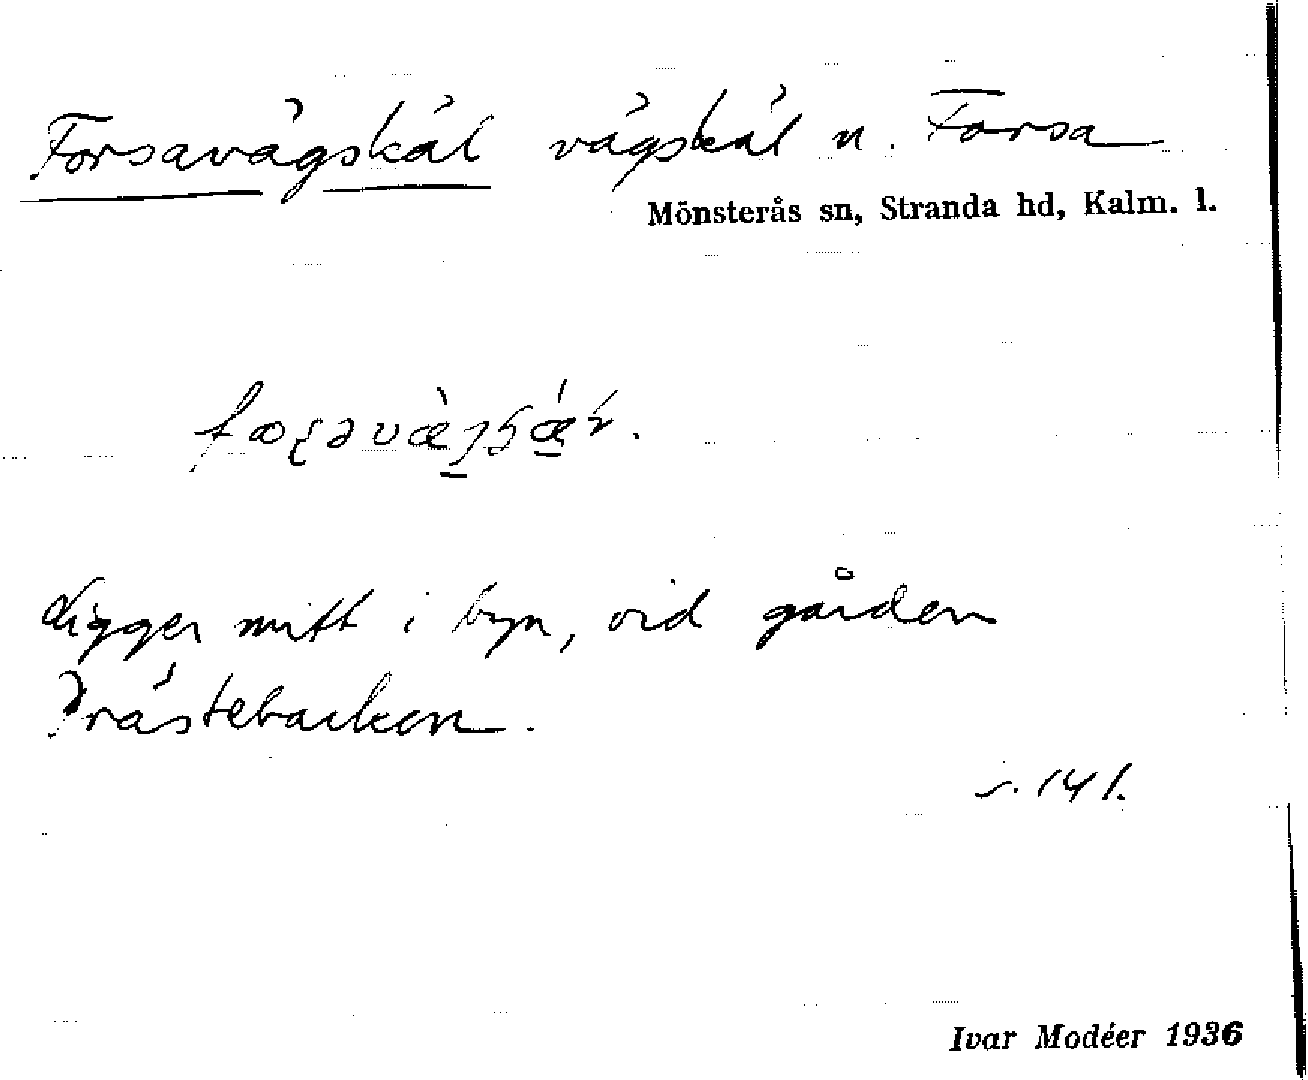 Forsavägskäl vägskäl n. Forsa
Mönsterås sn, Stranda hd, Kalm. l.
Ligger mitt i byn, vid gården
Prästebacken.
s. 141.
Ivar Modéer 1936